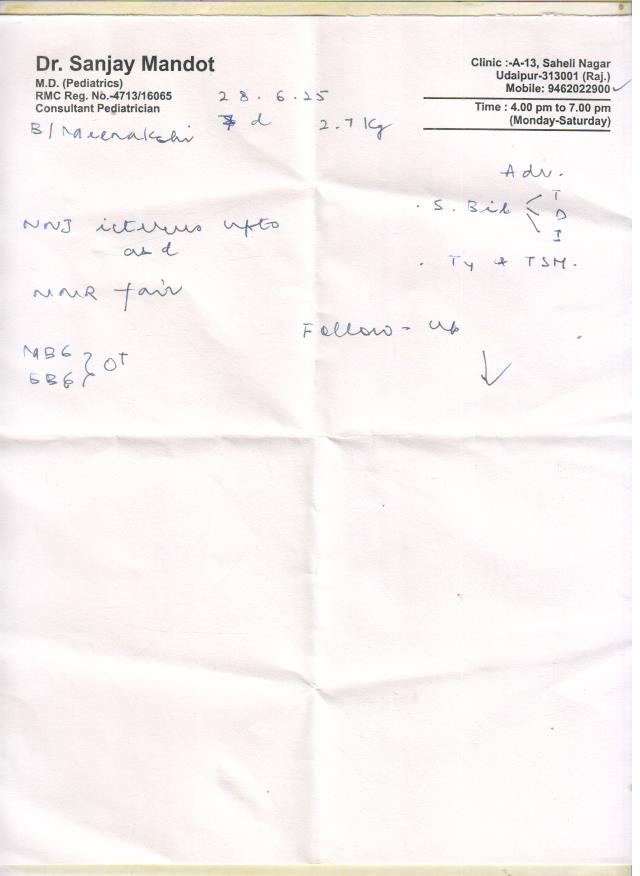 Dr. Sanjay Mandot
M.D. (Pediatrics)
RMC Reg. No.-4713/16065
Consultant Pediatrician
Clinic :-A-13, Saheli Nagar
Udaipur-313001 (Raj.)
Mobile: 9462022900
Time : 4.00 pm to 7.00 pm
(Monday-Saturday)
28.6.25
B/Meenakshi d 2.7 Kg
Adv.
. S. Bil T
D
I
NNJ icterus upto
abd
. T4 & TSH.
NNR fair
Follow - up
MBG } O+
BBG